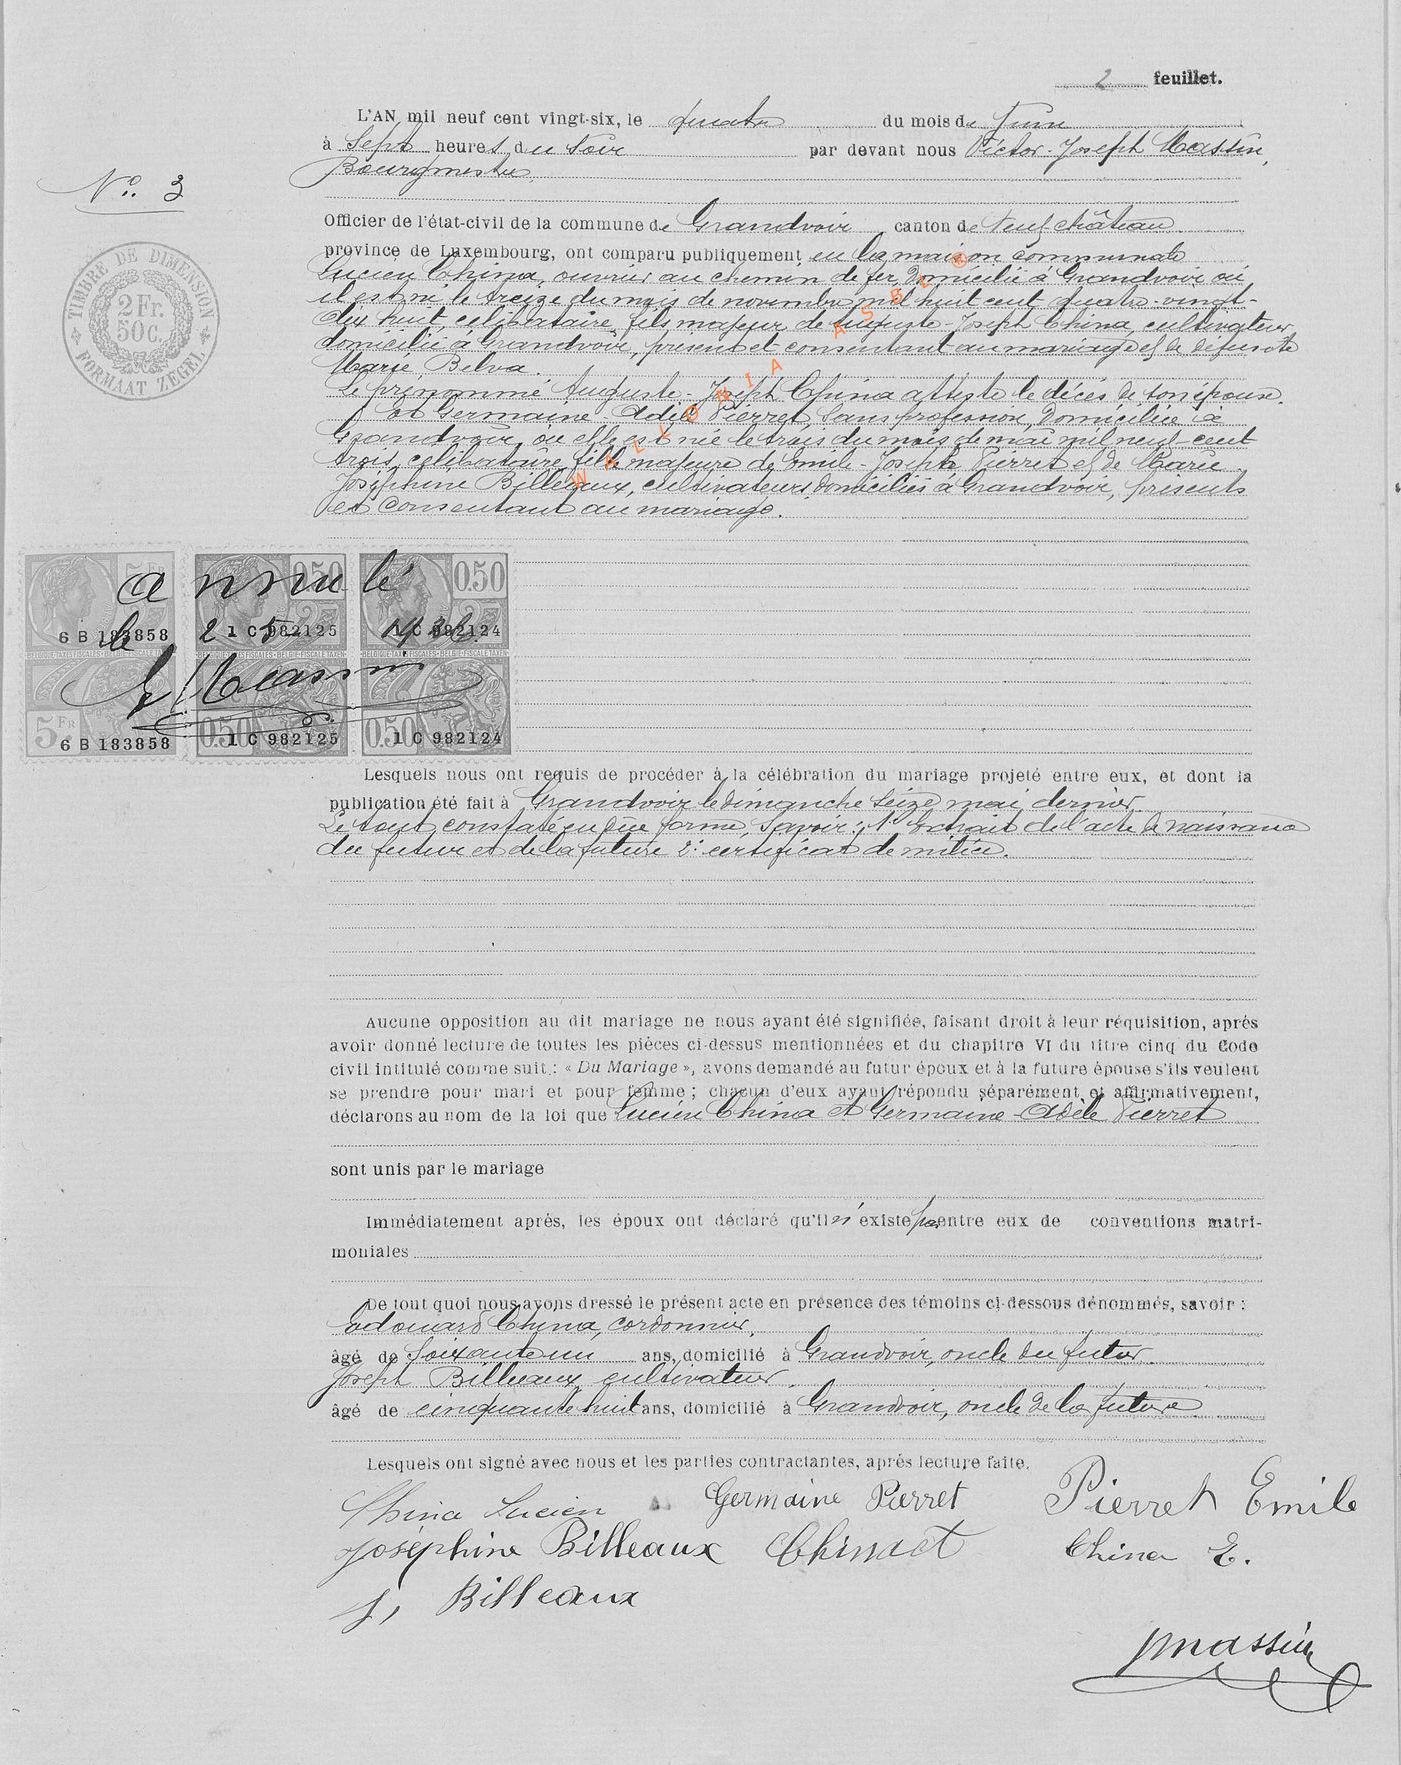 2 feuillet.
L'AN mil neuf cent vingt-six, le quatre du mois de Juin
à Sept heures du soir par devant nous Victor-Joseph Massin,
Bourgmestre
N° 3
Officier de l'état-civil de la commune de Grandvoir canton de Neufchâteau
province de Luxembourg, ont comparu publiquement en la maison communale
Lucien China, ouvrier au chemin de fer, domicilié à Grandvoir où
il est né le treize du mois de novembre mil huit cent quatre-vingt-
dix huit, célibataire, fils majeur de Auguste-Joseph China, cultivateur,
domicilié à Grandvoir, présent et consentant au mariage et de défunte
Marie Belva.
Le prénommé Auguste-Joseph China atteste le décès de son épouse.
et Germaine-Adèle Pierret, sans profession, domiciliée à
Grandvoir, où elle est née le trois du mois de mai mil neuf-cent
trois, célibataire, fille majeure de Emile-Joseph Pierret et de Marie
Joséphine Billeaux, cultivateurs, domiciliés à Grandvoir, présents
et consentant au mariage.
WALLONIA ASBL ®
TIMBRE DE DIMENSION
2 Fr.
50 c.
FORMAAT ZEGEL
annulé
le 2 5 1926
Massin
5 Fr 0.50 0.50
6 B 183858 1 C 982125 1 C 982124
BELGIQUE-TAXES FISCALES - BELGIE-FISCALE TAXEN
5 Fr 0.50 0.50
6 B 183858 1 C 982125 1 C 982124
Lesquels nous ont requis de procéder à la célébration du mariage projeté entre eux, et dont la
publication été fait à Grandvoir le dimanche seize mai dernier
Le tout constaté en due forme, savoir: 1° Extrait de l'acte de naissance
du futur et de la future 2° certificat de milice.
Aucune opposition au dit mariage ne nous ayant été signifiée, faisant droit à leur réquisition, après
avoir donné lecture de toutes les pièces ci-dessus mentionnées et du chapitre VI du titre cinq du Code
civil intitulé comme suit : « Du Mariage », avons demandé au futur époux et à la future épouse s'ils veulent
se prendre pour mari et pour femme ; chacun d'eux ayant répondu séparément et affirmativement,
déclarons au nom de la loi que Lucien China et Germaine-Adèle Pierret
sont unis par le mariage
Immédiatement après, les époux ont déclaré qu'il n'existe pas entre eux de conventions matri-
moniales
De tout quoi nous avons dressé le présent acte en présence des témoins ci-dessous dénommés, savoir :
Edouard China, cordonnier,
âgé de soixante un ans, domicilié à Grandvoir, oncle du futur
Joseph Billeaux, cultivateur
âgé de cinquante huit ans, domicilié à Grandvoir, oncle de la future
Lesquels ont signé avec nous et les parties contractantes, après lecture faite.
China Lucien Germaine Pierret Pierret Emile
Joséphine Billeaux China ct China E.
J, Billeaux
Massin